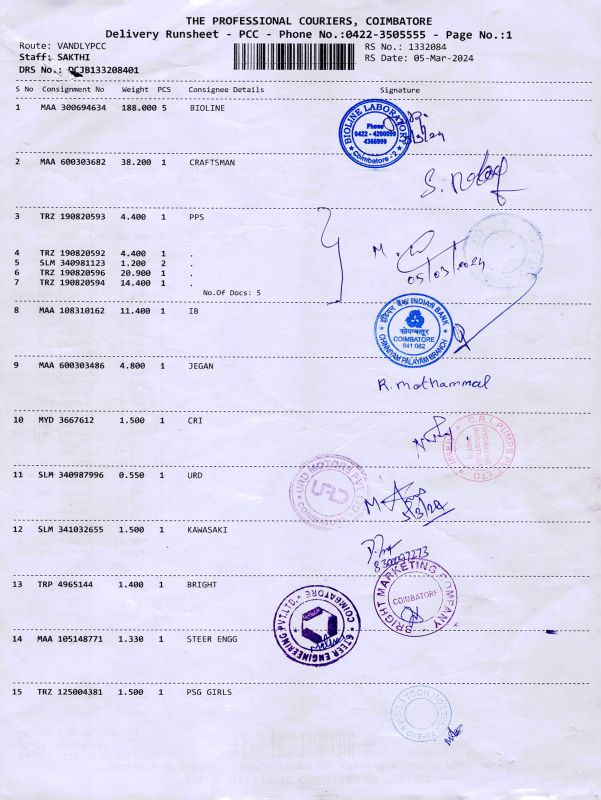 THE PROFESSIONAL COURIERS, COIMBATORE
Delivery Runsheet - PCC - Phone No.:0422-3505555 - Page No.:1
Route: VANDLYPCC RS No.: 1332084
Staff: SAKTHI RS Date: 05-Mar-2024
DRS No.: PCJB133208401
S No Consignment No Weight PCS Consignee Details Signature
1 MAA 300694634 188.000 5 BIOLINE
BIOLINE LABORATORY
Phone
0422 - 4200099
4366999
Coimbatore - 2
2 MAA 600303682 38.200 1 CRAFTSMAN
3 TRZ 190820593 4.400 1 PPS
4 TRZ 190820592 4.400 1 .
5 SLM 340981123 1.200 2 .
6 TRZ 190820596 20.900 1 .
7 TRZ 190820594 14.400 1 .
05/03/2024
No.Of Docs: 5
8 MAA 108310162 11.400 1 IB
इंडियन बैंक INDIAN BANK
कोयम्बत्तूर
COIMBATORE
641 062
CHINNIYAM PALAYAM BRANCH
9 MAA 600303486 4.800 1 JEGAN
R. Mothammal
10 MYD 3667612 1.500 1 CRI
C.R.I. PUMPS PVT LTD
11 SLM 340987996 0.550 1 URD
URD MOTORS PVT LTD
URD
5/3/24
12 SLM 341032655 1.500 1 KAWASAKI
13 TRP 4965144 1.400 1 BRIGHT
BRIGHT MARKETING COMPANY
COIMBATORE
14 MAA 105148771 1.330 1 STEER ENGG
STEER ENGINEERING PVT. LTD.
COIMBATORE
15 TRZ 125004381 1.500 1 PSG GIRLS